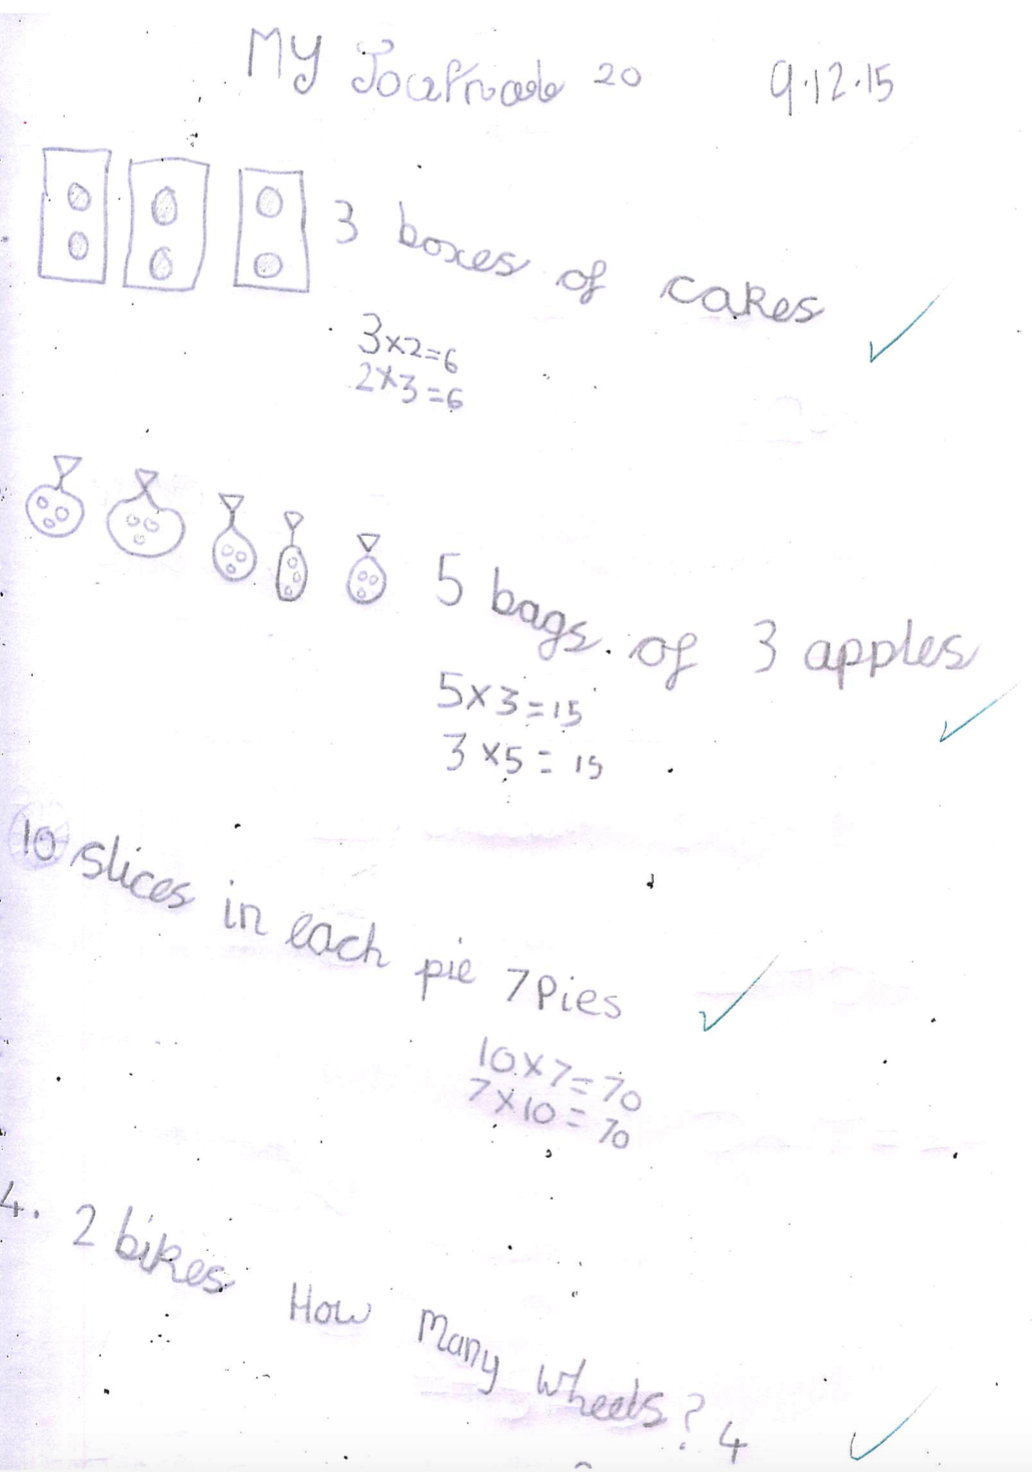 My Journal 20 9.12.15
3 boxes of cakes
3×2=6
2×3=6
5 bags. of 3 apples
5×3=15
3×5=15
10 slices in each pie 7 Pies
10×7=70
7×10=70
4. 2 bikes How Many wheels? 4